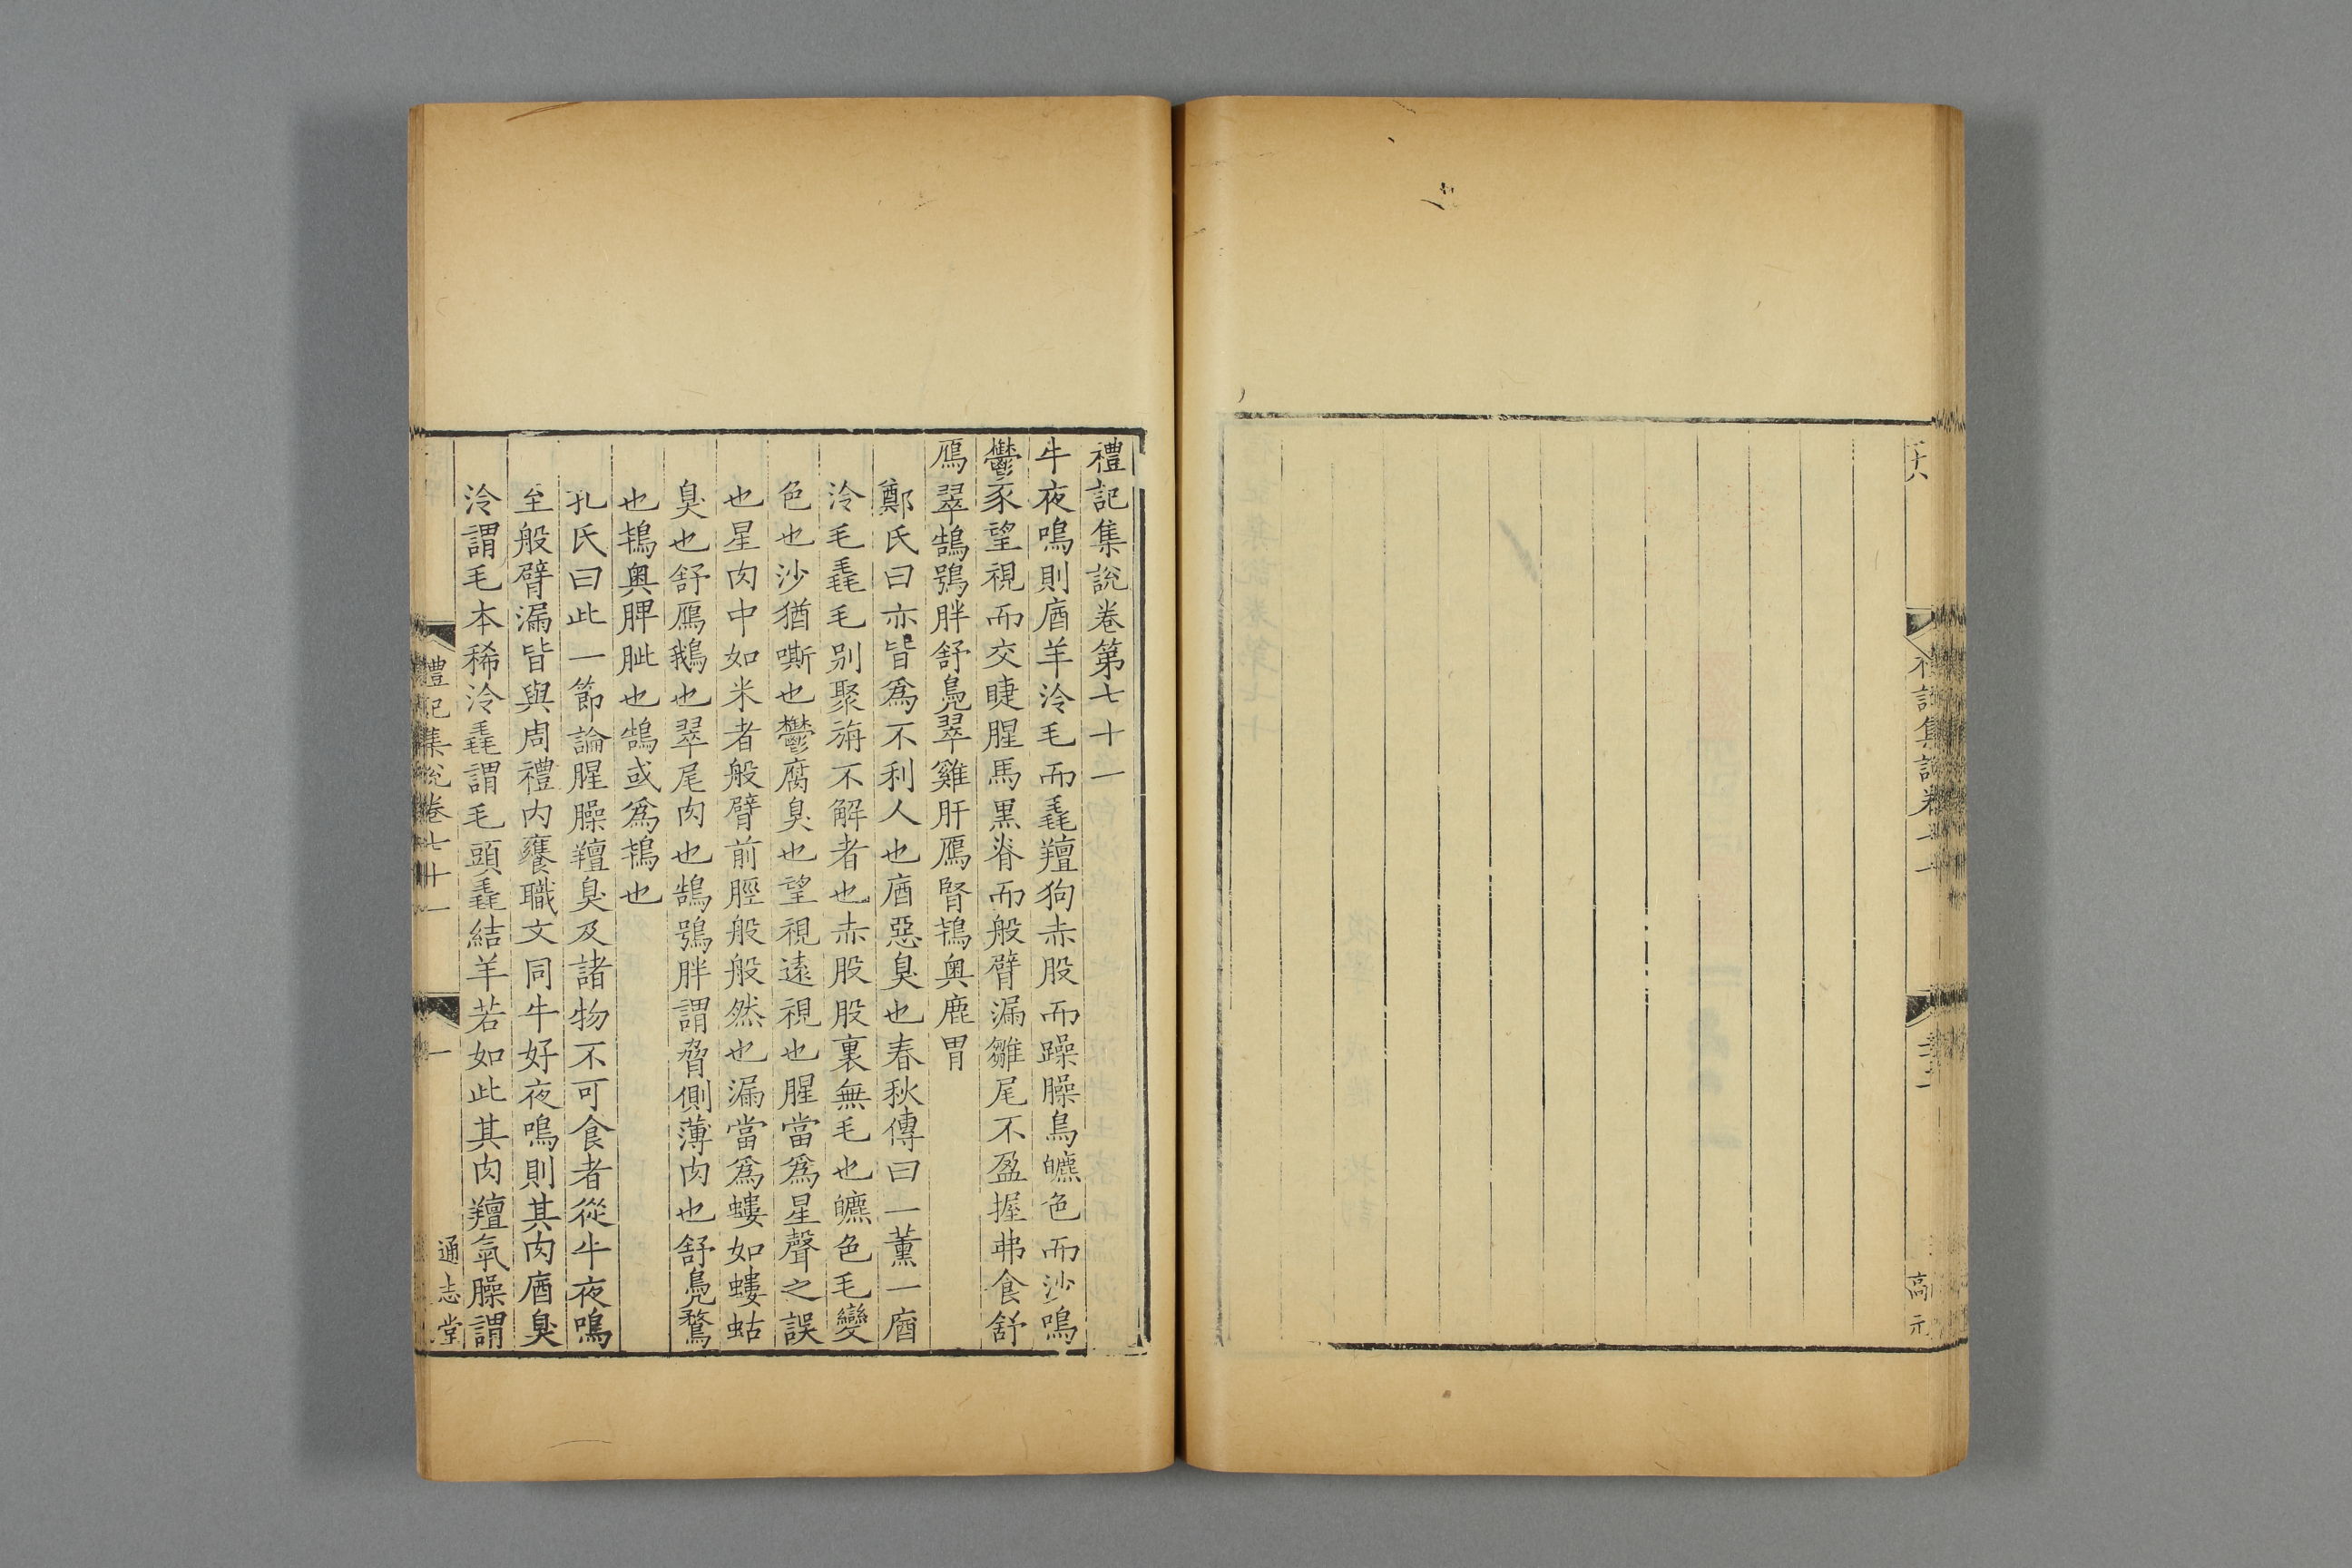 禮記集說卷第七十一
牛夜鳴則庮羊泠毛而毳羶狗赤股而躁臊鳥皫色而沙鳴
鬱豕望視而交睫腥馬黑脊而般臂漏雛尾不盈握弗食舒
鴈翠鵠鴞胖舒鳧翠雞肝鴈腎鴇奧鹿胃
鄭氏曰亦皆爲不利人也庮惡臭也春秋傳曰一薰一庮
泠毛毳毛別聚旃不解者也赤股股裏無毛也皫色毛變
色也沙猶嘶也鬱腐臭也望視遠視也腥當爲星聲之誤
也星肉中如米者般臂前脛般般然也漏當爲螻如螻蛄
臭也舒鴈鵝也翠尾肉也鵠鴞胖謂脅側薄肉也舒鳧鶩
也鴇奧脾肶也鵠或爲鴇也
孔氏曰此一節論腥臊羶臭及諸物不可食者從牛夜鳴
至般臂漏皆與周禮內饔職文同牛好夜鳴則其肉庮臭
泠謂毛本稀泠毳謂毛頭毳結羊若如此其肉羶氣臊謂
禮記集說卷七十一
一
通志堂